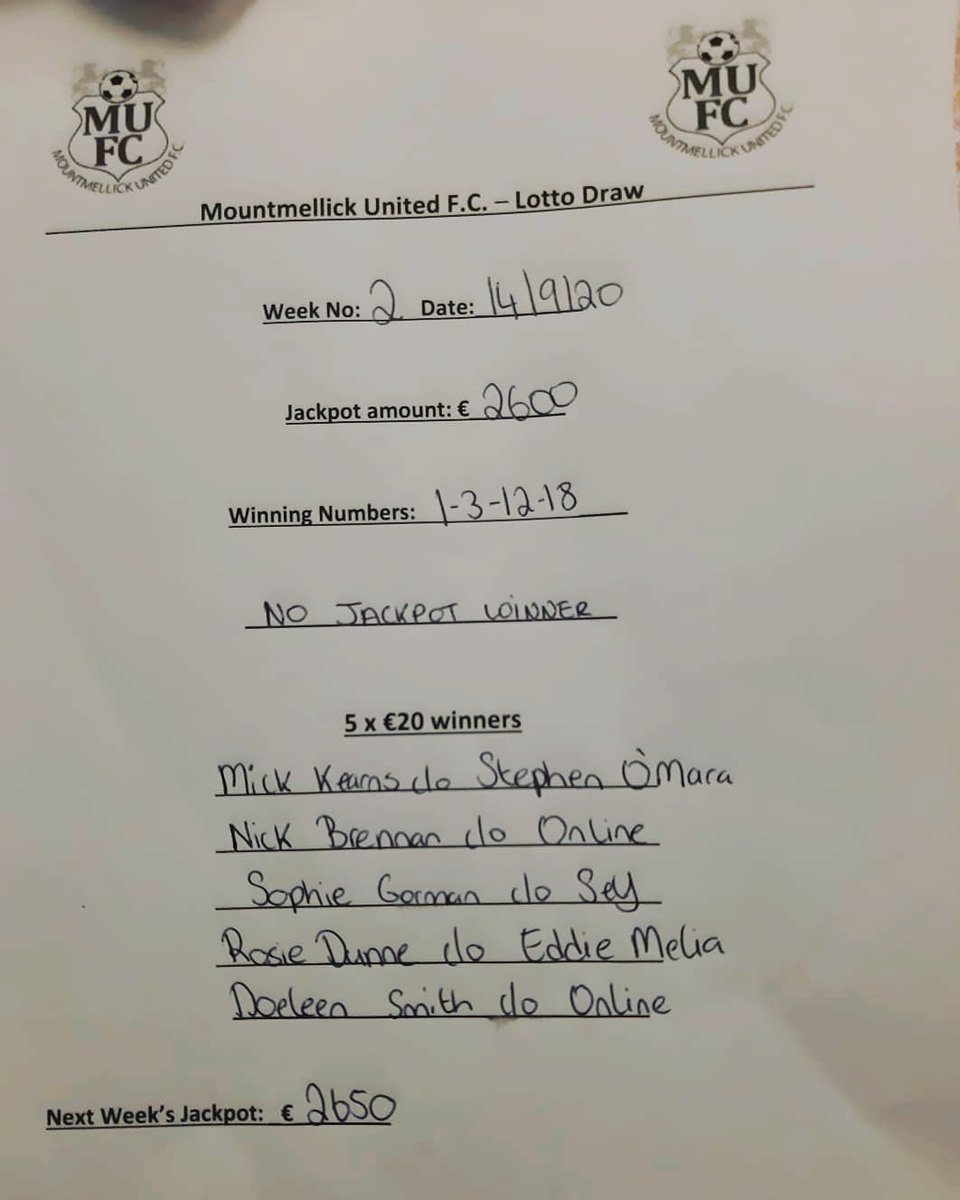 MU
FC
MOUNTMELLICK UNITED F.C.
MU
FC
MOUNTMELLICK UNITED F.C.
Mountmellick United F.C. – Lotto Draw
Week No: 2 Date: 14/9/20
Jackpot amount: € 2600
Winning Numbers: 1-3-12-18
NO JACKPOT WINNER
5 x €20 winners
Mick Kearns c/o Stephen O'Mara
Nick Brennan c/o Online
Sophie Gorman c/o Sey
Rosie Dunne c/o Eddie Melia
Doeleen Smith c/o Online
Next Week's Jackpot: € 2650